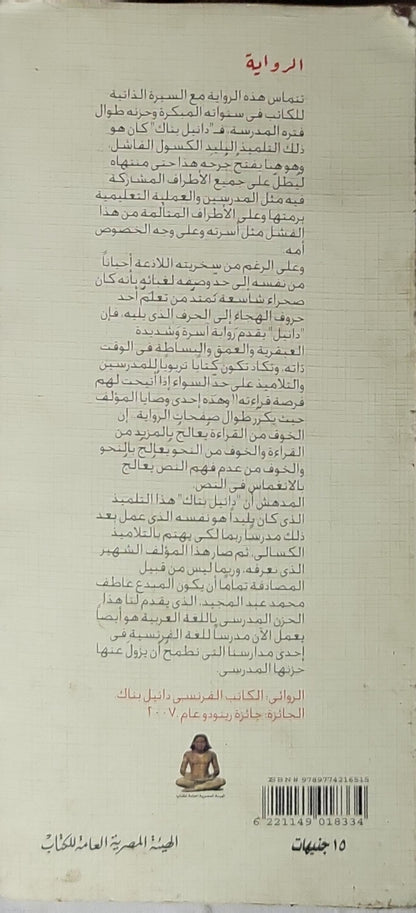 الرواية
تتماس هذه الرواية مع السيرة الذاتية
للكاتب فى سنواته المبكرة وحزنه طوال
فترة المدرسة، فـ"دانيل بناك" كان هو
ذلك التلميذ البليد الكسول الفاشل.
وهو هنا يفتح جرحه هذا حتى منتهاه
ليطلّ على جميع الأطراف المشاركة
فيه مثل المدرسين والعملية التعليمية
برمتها وعلى الأطراف المتألمة من هذا
الفشل مثل أسرته وعلى وجه الخصوص
أمه.
وعلى الرغم من سخريته اللاذعة أحياناً
من نفسه إلى حد وصفه لغبائه بأنه كان
صحراء شاسعة تمتد من تعلم أحد
حروف الهجاء إلى الحرف الذى يليه، فإن
"دانيل" يقدم رواية آسرة وشديدة
العبقرية والعمق والبساطة فى الوقت
ذاته، وتكاد تكون كتاباً تربوياً للمدرسين
والتلاميذ على حد السواء إذا أتيحت لهم
فرصة قراءته!! وهذه إحدى وصايا المؤلف
حيث يكرر طوال صفحات الرواية.. إن
الخوف من القراءة يعالج بالمزيد من
القراءة والخوف من النحو يعالج بالنحو
والخوف من عدم فهم النص يعالج
بالانغماس فى النص.
المدهش أن "دانيل بناك" هذا التلميذ
الذى كان بليداً هو نفسه الذى عمل بعد
ذلك مدرساً ربما لكى يهتم بالتلاميذ
الكسالى، ثم صار هذا المؤلف الشهير
الذى نعرفه، وربما ليس من قبيل
المصادفة تماماً أن يكون المبدع عاطف
محمد عبد المجيد، الذى يقدم لنا هذا
الحزن المدرسى باللغة العربية هو أيضاً
يعمل الآن مدرساً للغة الفرنسية فى
إحدى مدارسنا التى نطمح أن يزول عنها
حزنها المدرسى.
الروائى: الكاتب الفرنسى دانيل بناك.
الجائزة: جائزة رينودو عام ٢٠٠٧.
الهيئة المصرية العامة للكتاب
ISBN# 9789774216515
6 221149 018334
١٥ جنيهات
الهيئة المصرية العامة للكتاب